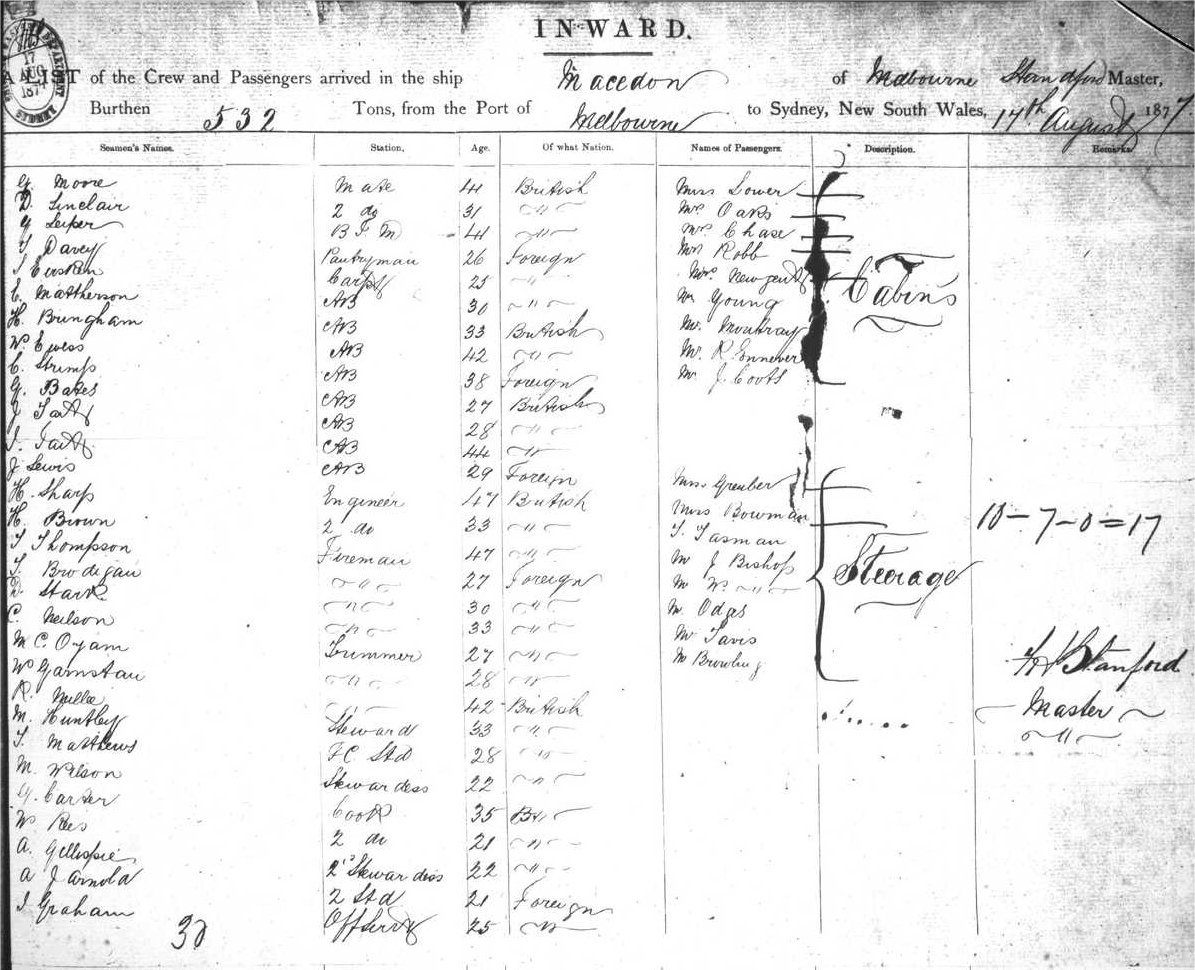 INWARD.
A LIST of the Crew and Passengers arrived in the ship Macedon of Melbourne Standford Master,
Burthen 532 Tons, from the Port of Melbourne to Sydney, New South Wales, 17th August 1877
Seamen's Names. Station. Age. Of what Nation. Names of Passengers. Description. Remarks
G. Moore Mate 41 British Miss Lower
D. Sinclair 2 do 31 " Mrs Oaks
G Leiper B.F.M 41 " Mrs Chase
T Davey Pantryman 26 Foreign Mrs Robb
J Carpt 25 " Mrs Newgent
C. Mattherson AB 30 " Mr Young Cabins
H. Bringham AB 33 British Mr. Moubray
W. Ewess AB 42 " Mr. R. Ennever
C. Strimp AB 38 Foreign Mr J. Coots
G. Bates AB 27 British
J Tait AB 28 "
J. Tait AB 44 "
J Lewis AB 29 Foreign Miss Greuber
H. Sharp Engineer 47 British Miss Bowman
H. Brown 2 do 33 " T. Tasman 10-7-0=17
T Thompson Fireman 47 " Mr J Bishop
T. Brodigan " 27 Foreign Mr W. " Steerage
D. Stark " 30 " Mr Odgs
C. Neilson " 33 " Mr Tavis
M C. Oyam Trimmer 27 " Mr Browling
W Garnstan " 28 " Stanford
R. " 42 British Master
M. Huntley Steward 33 " "
T. Matthews F.C. Std 28 "
M. Wilson Stewardess 22 "
G. Carter Cook 35 Br
W Rees 2 do 21 "
A. Gillespie 2nd Stewardess 22 "
A J Arnold 2 Std 21 Foreign
J Graham Off Servt 25 "
30